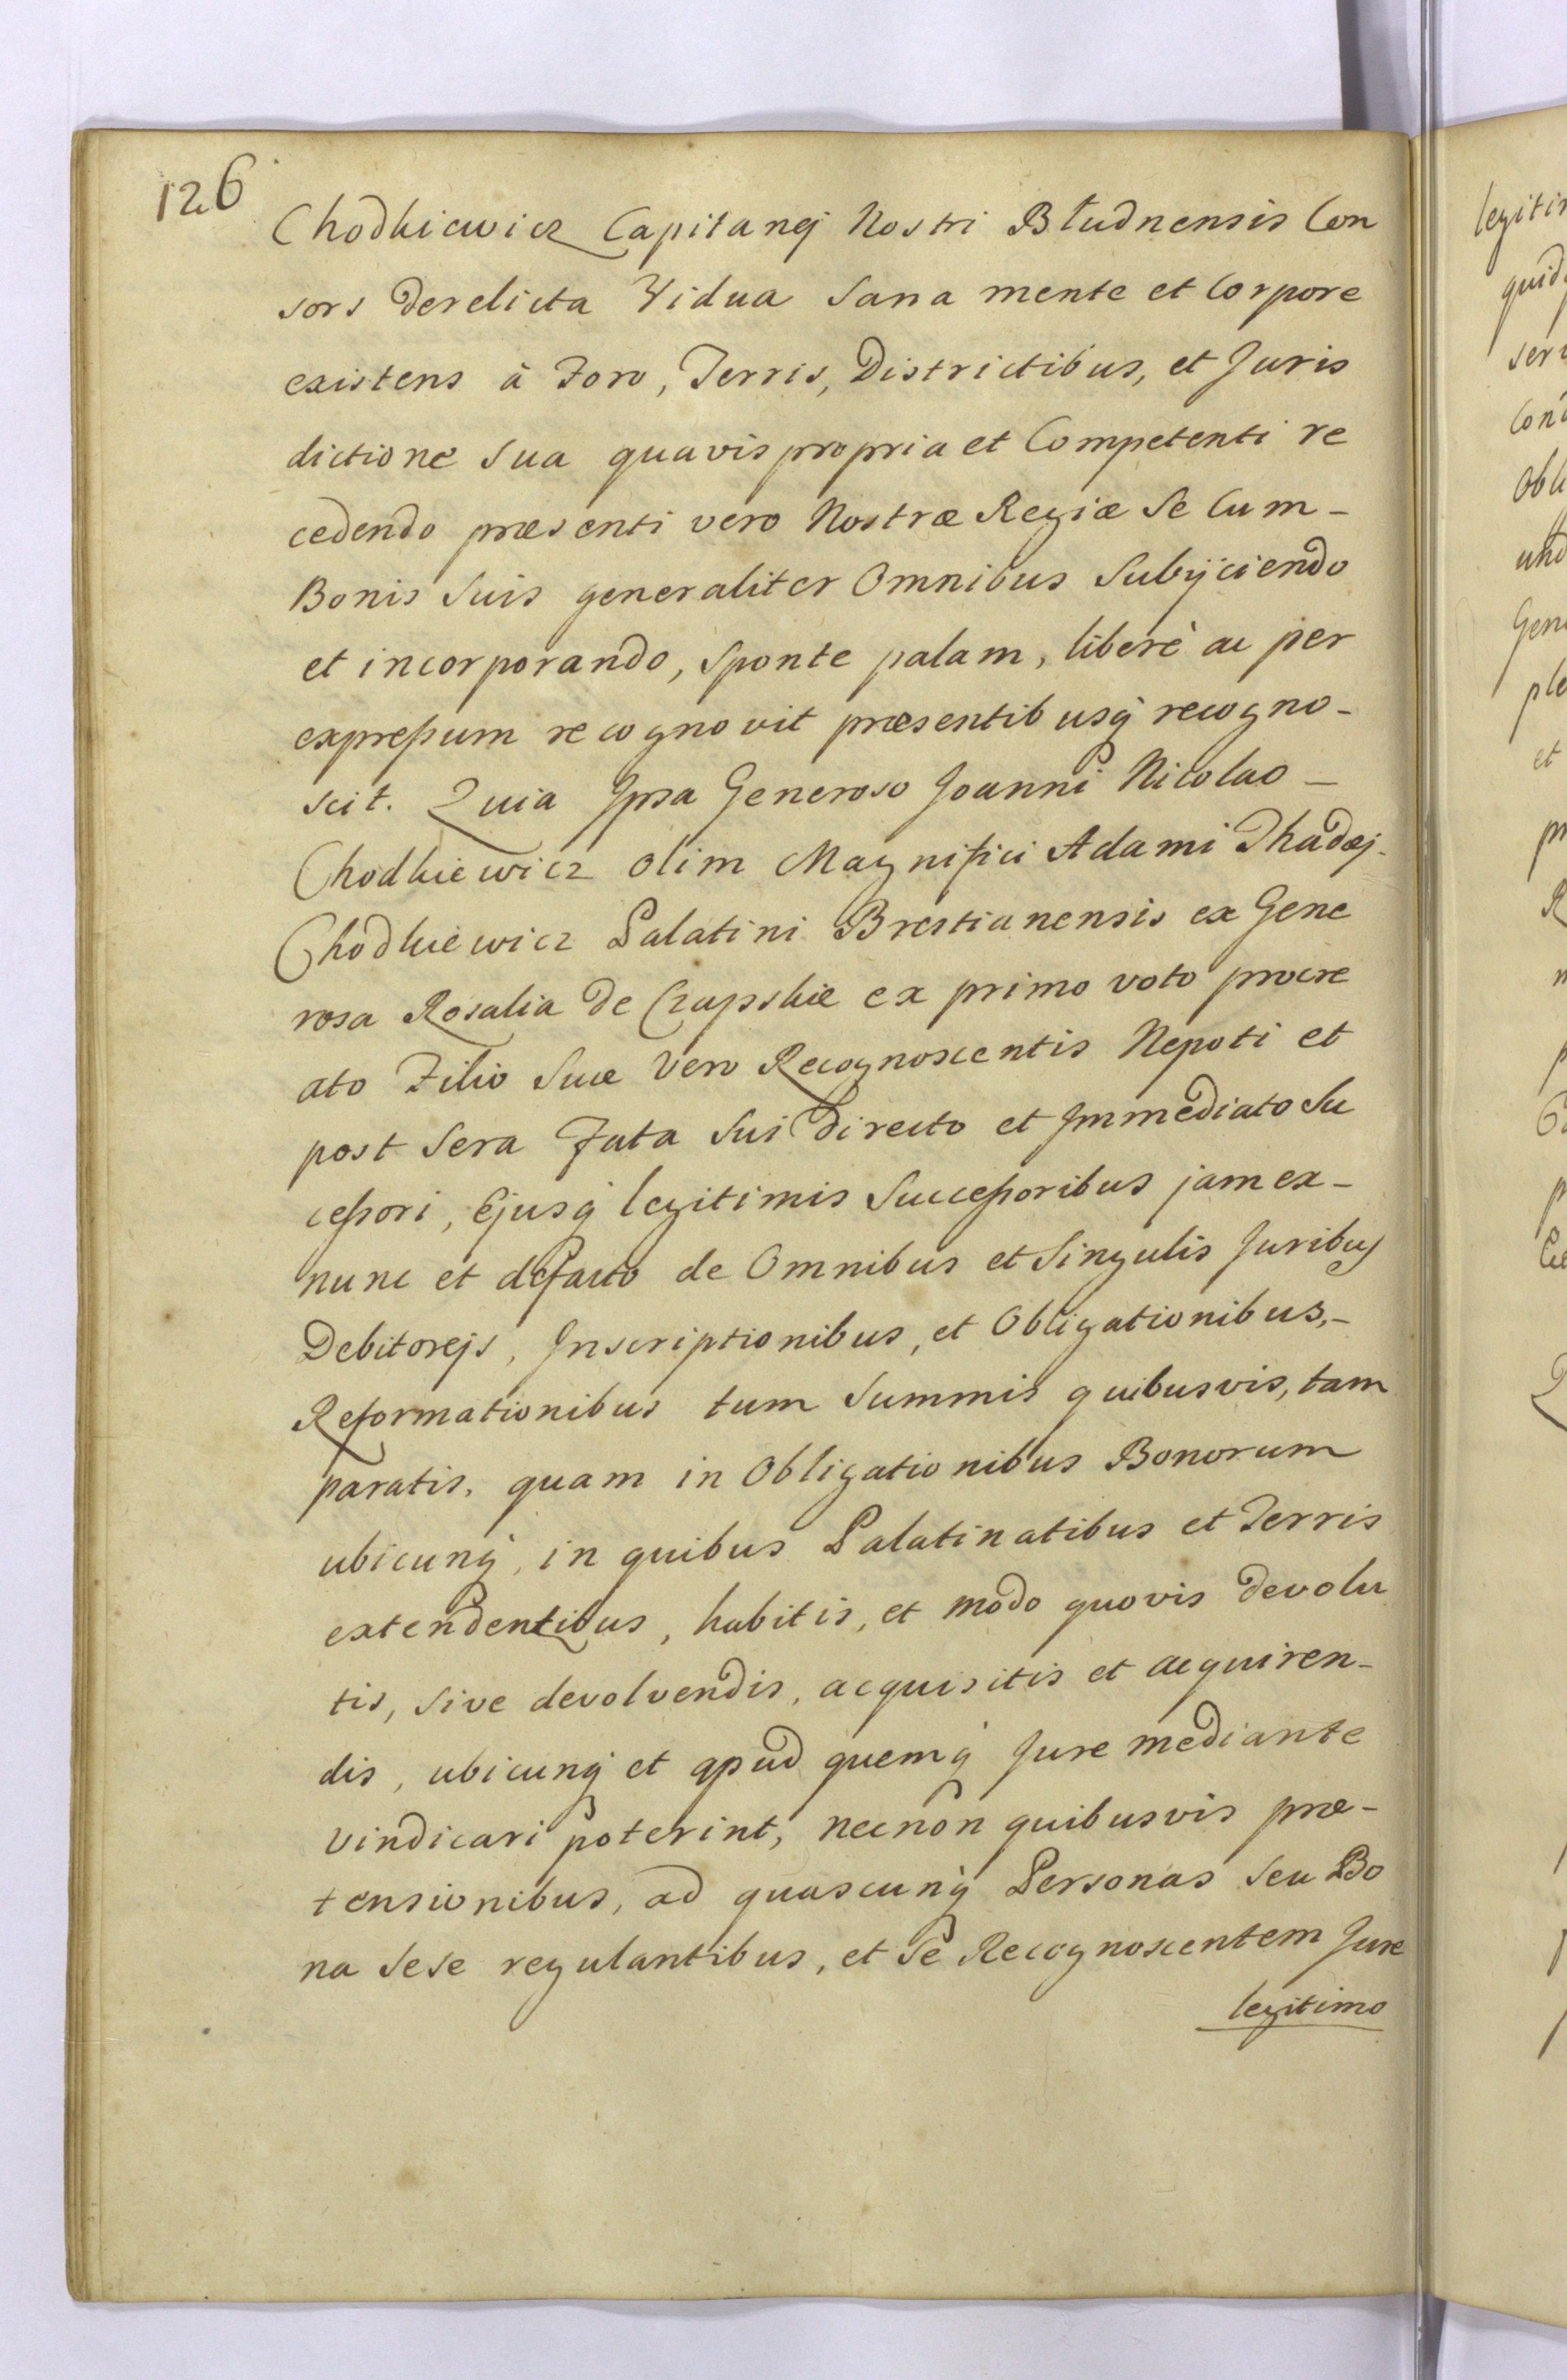 126
Chodkiewicz Capitanej Nostri Błudnensis Con
sors derelicta Vidua Sana mente et Corpore
existens à Foro, Terris, Districtibus, et Juris
dictione sua quavis propria et Competenti re
cedendo præsenti vero Nostræ Regiæ Se Cum -
Bonis Suis generaliter Omnibus Subijciendo
et incorporando, sponte palam, liberè ac per
expreßum recognovit præsentibusq́ recogno -
scit. Quia Ipsa Generoso Joanni Nicolao -
Chodkiewicz olim Magnifici Adami Thadæj -
Chodkiewicz Palatini Brestianensis ex Gene
rosa Rosalia de Czapskie ex primo voto procre
ato Filio Suæ Vero Recognoscentis Nepoti et
post Sera Fata Sui directo et Immediato Su
ceßori, Ejusq́ legitimis Succeßoribus jam ex -
nunc et defacto de Omnibus et Singulis Juribus
Debitorejs, Inscriptionibus, et Obligationibus, -
Reformationibus tum Summis quibusvis, tam
paratis, quam in Obligationibus Bonorum
ubicunq́, in quibus Palatinatibus et Terris
extendentibus, habitis, et modo quovis devolu
tis, sive devolvendis, acquisitis et acquiren -
dis, ubicunq́ et apud quemq́ Jure mediante
vindicari poterint, necnon quibusvis præ -
tensionibus, ad quascunq́ Personas seu Bo
na sese regulantibus, et Se Recognoscentem Jure
legitimo